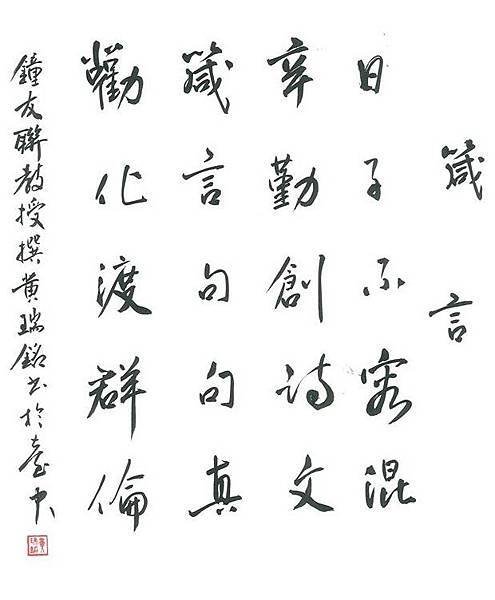 箴言
日子不容混
辛勤創詩文
箴言句句真
勸化渡群倫
鐘友聯教授撰黃瑞銘書於臺中